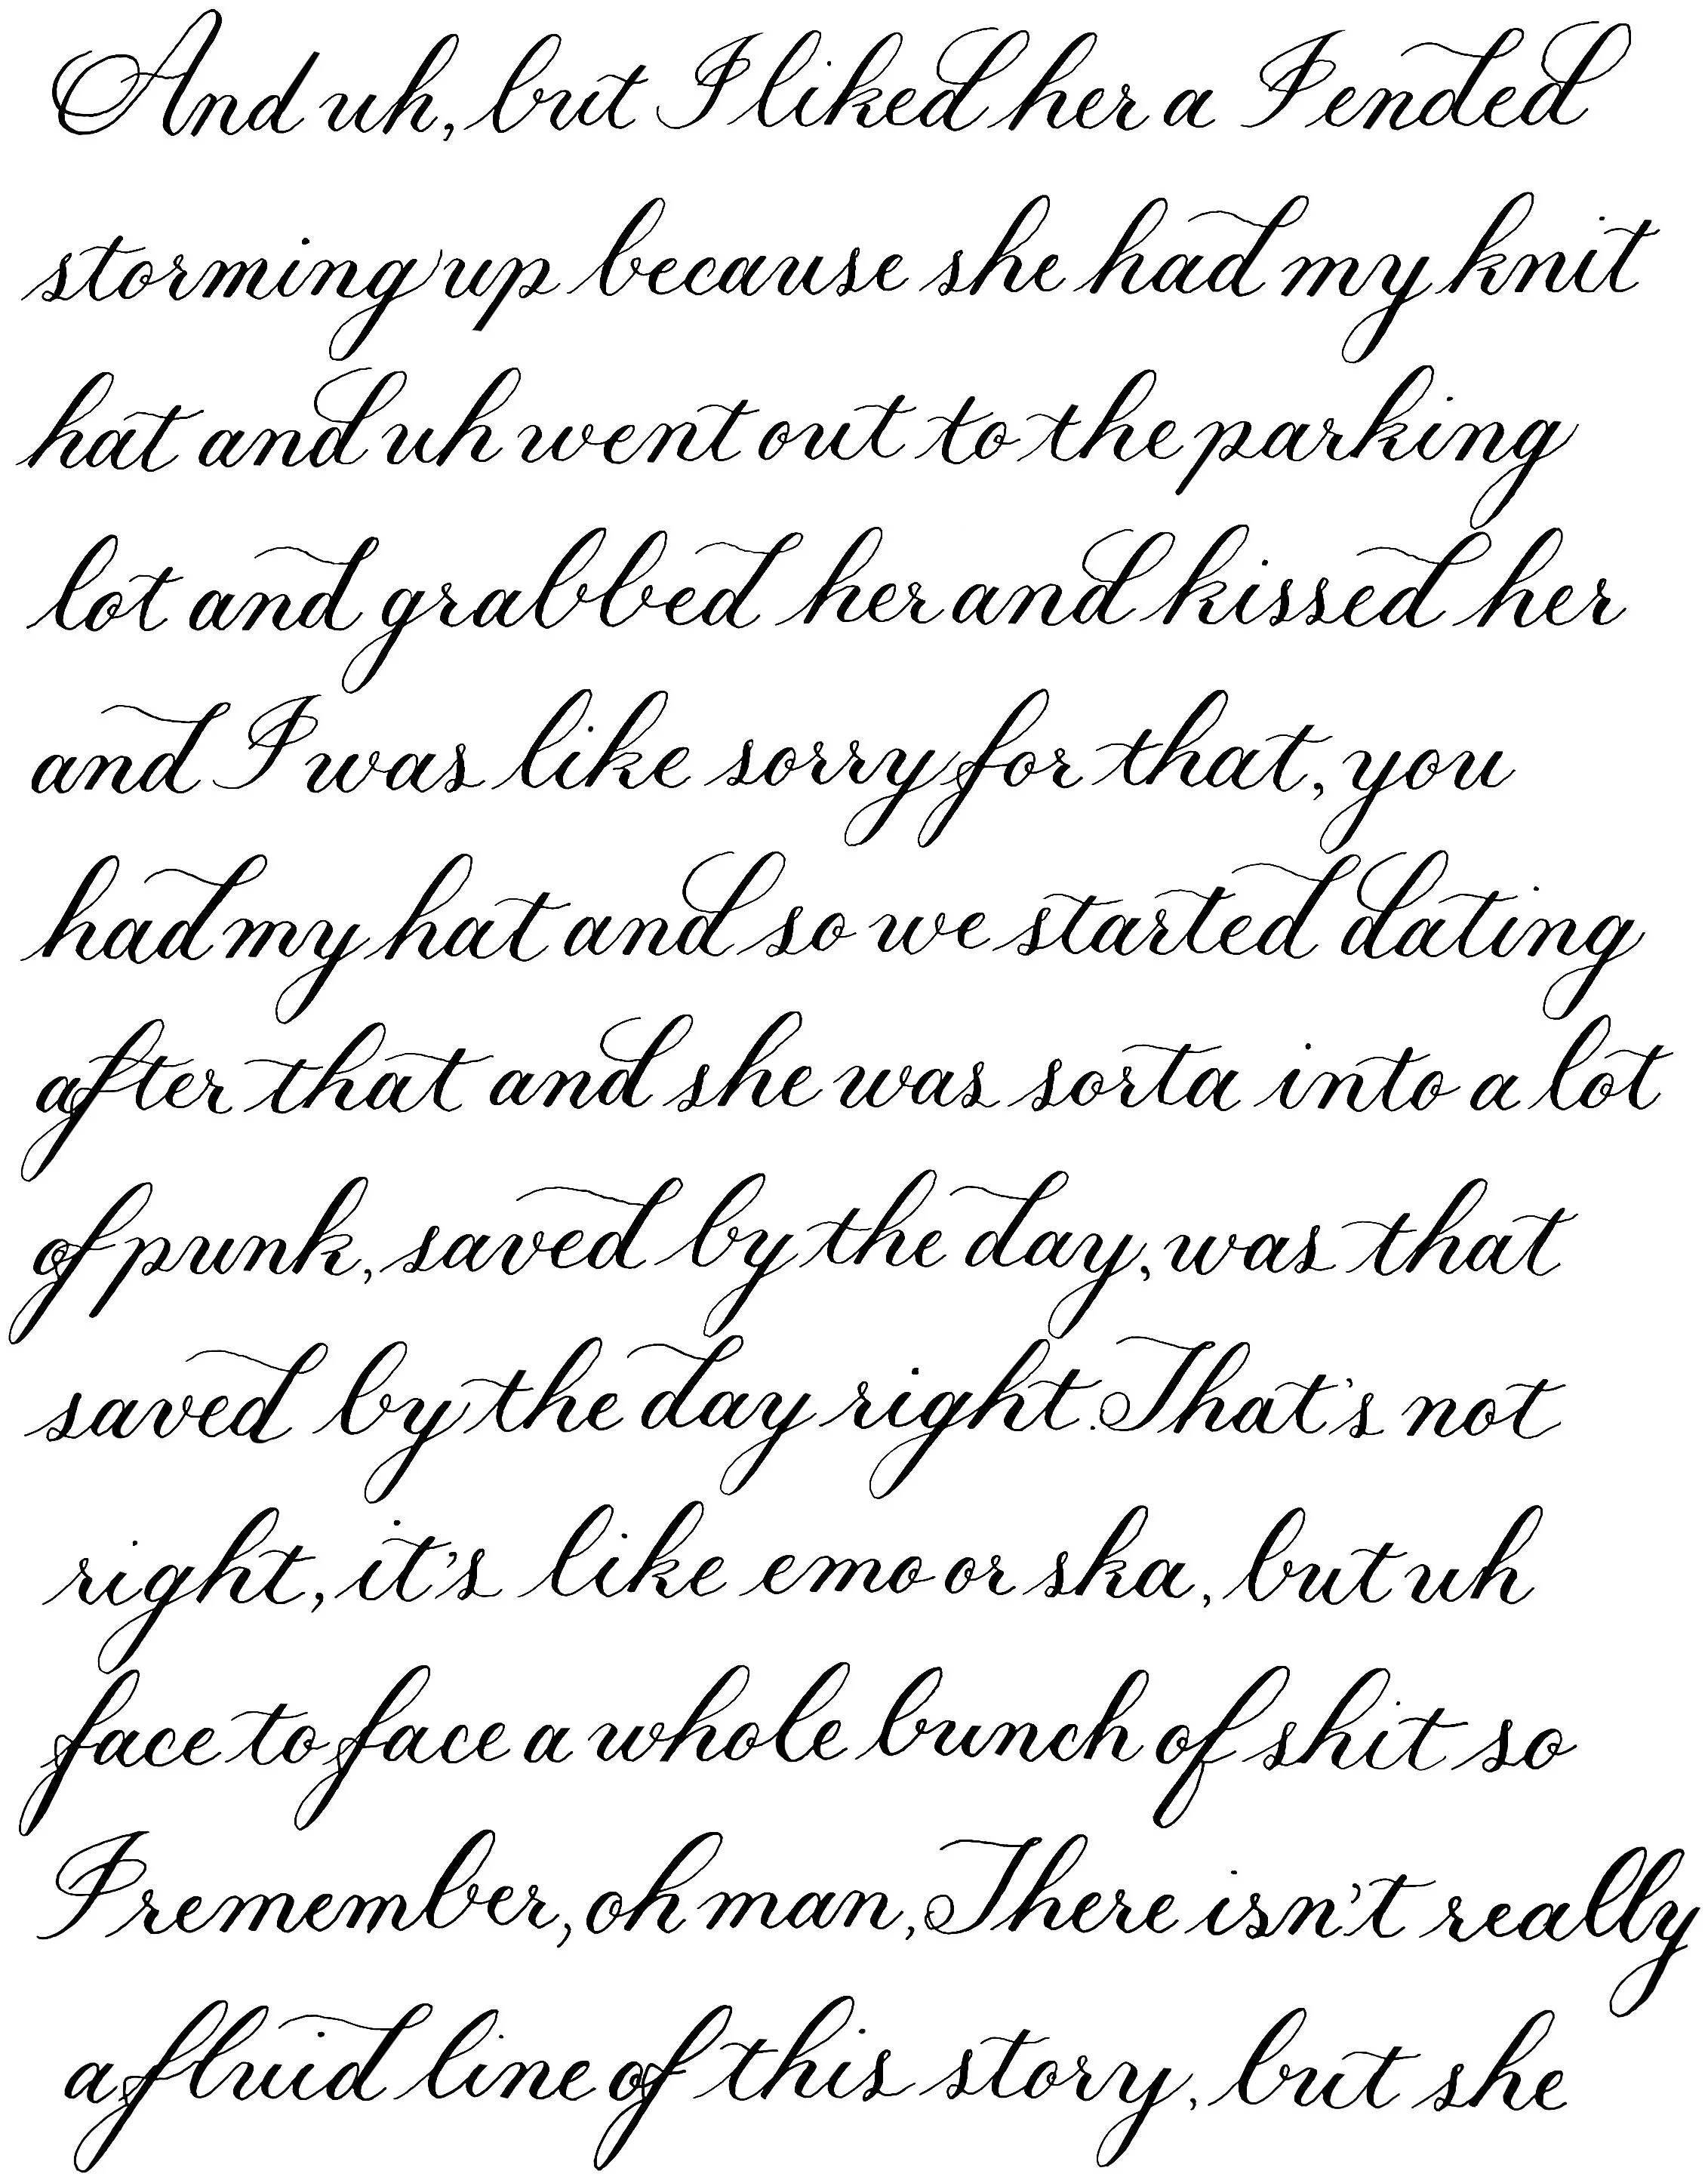 And uh, but I liked her a I ended
storming up because she had my knit
hat and uh went out to the parking
lot and grabbed her and kissed her
and I was like sorry for that, you
had my hat and so we started dating
after that and she was sorta into a lot
of punk, saved by the day, was that
saved by the day right. That's not
right, it's like emo or ska, but uh
face to face a whole bunch of shit so
I remember, oh man, There isn't really
a fluid line of this story, but she